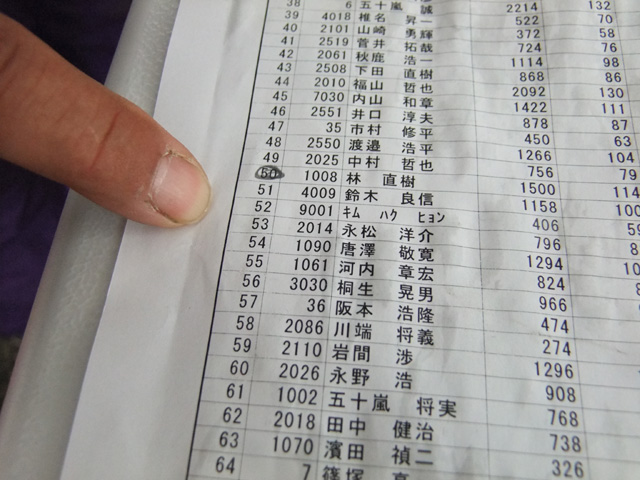 38 6 五十嵐 誠 2214 132
39 4018 椎名 昇一 522 70
40 2101 山崎 勇輝 372 58
41 2519 菅井 拓哉 724 76
42 2061 秋鹿 浩一 1114 98
43 2508 下田 直樹 868 86
44 2010 福山 哲也 2092 130
45 7030 内山 和章 1422 111
46 2551 井口 淳夫 878 87
47 35 市村 修平 450 63
48 2550 渡邉 浩平 1266 104
49 2025 中村 哲也 756 79
50 1008 林 直樹 1500 114
51 4009 鈴木 良信 1158 100
52 9001 ｷﾑ ﾊｸ ﾋｮﾝ 406 59
53 2014 永松 洋介 796 8
54 1090 唐澤 敬寛 1294 10
55 1061 河内 章宏 824 8
56 3030 桐生 晃男 966
57 36 阪本 浩隆 474
58 2086 川端 将義 274
59 2110 岩間 渉 1296
60 2026 永野 浩 908
61 1002 五十嵐 将実 768
62 2018 田中 健治 738
63 1070 濱田 禎二 326
64 7 篠塚